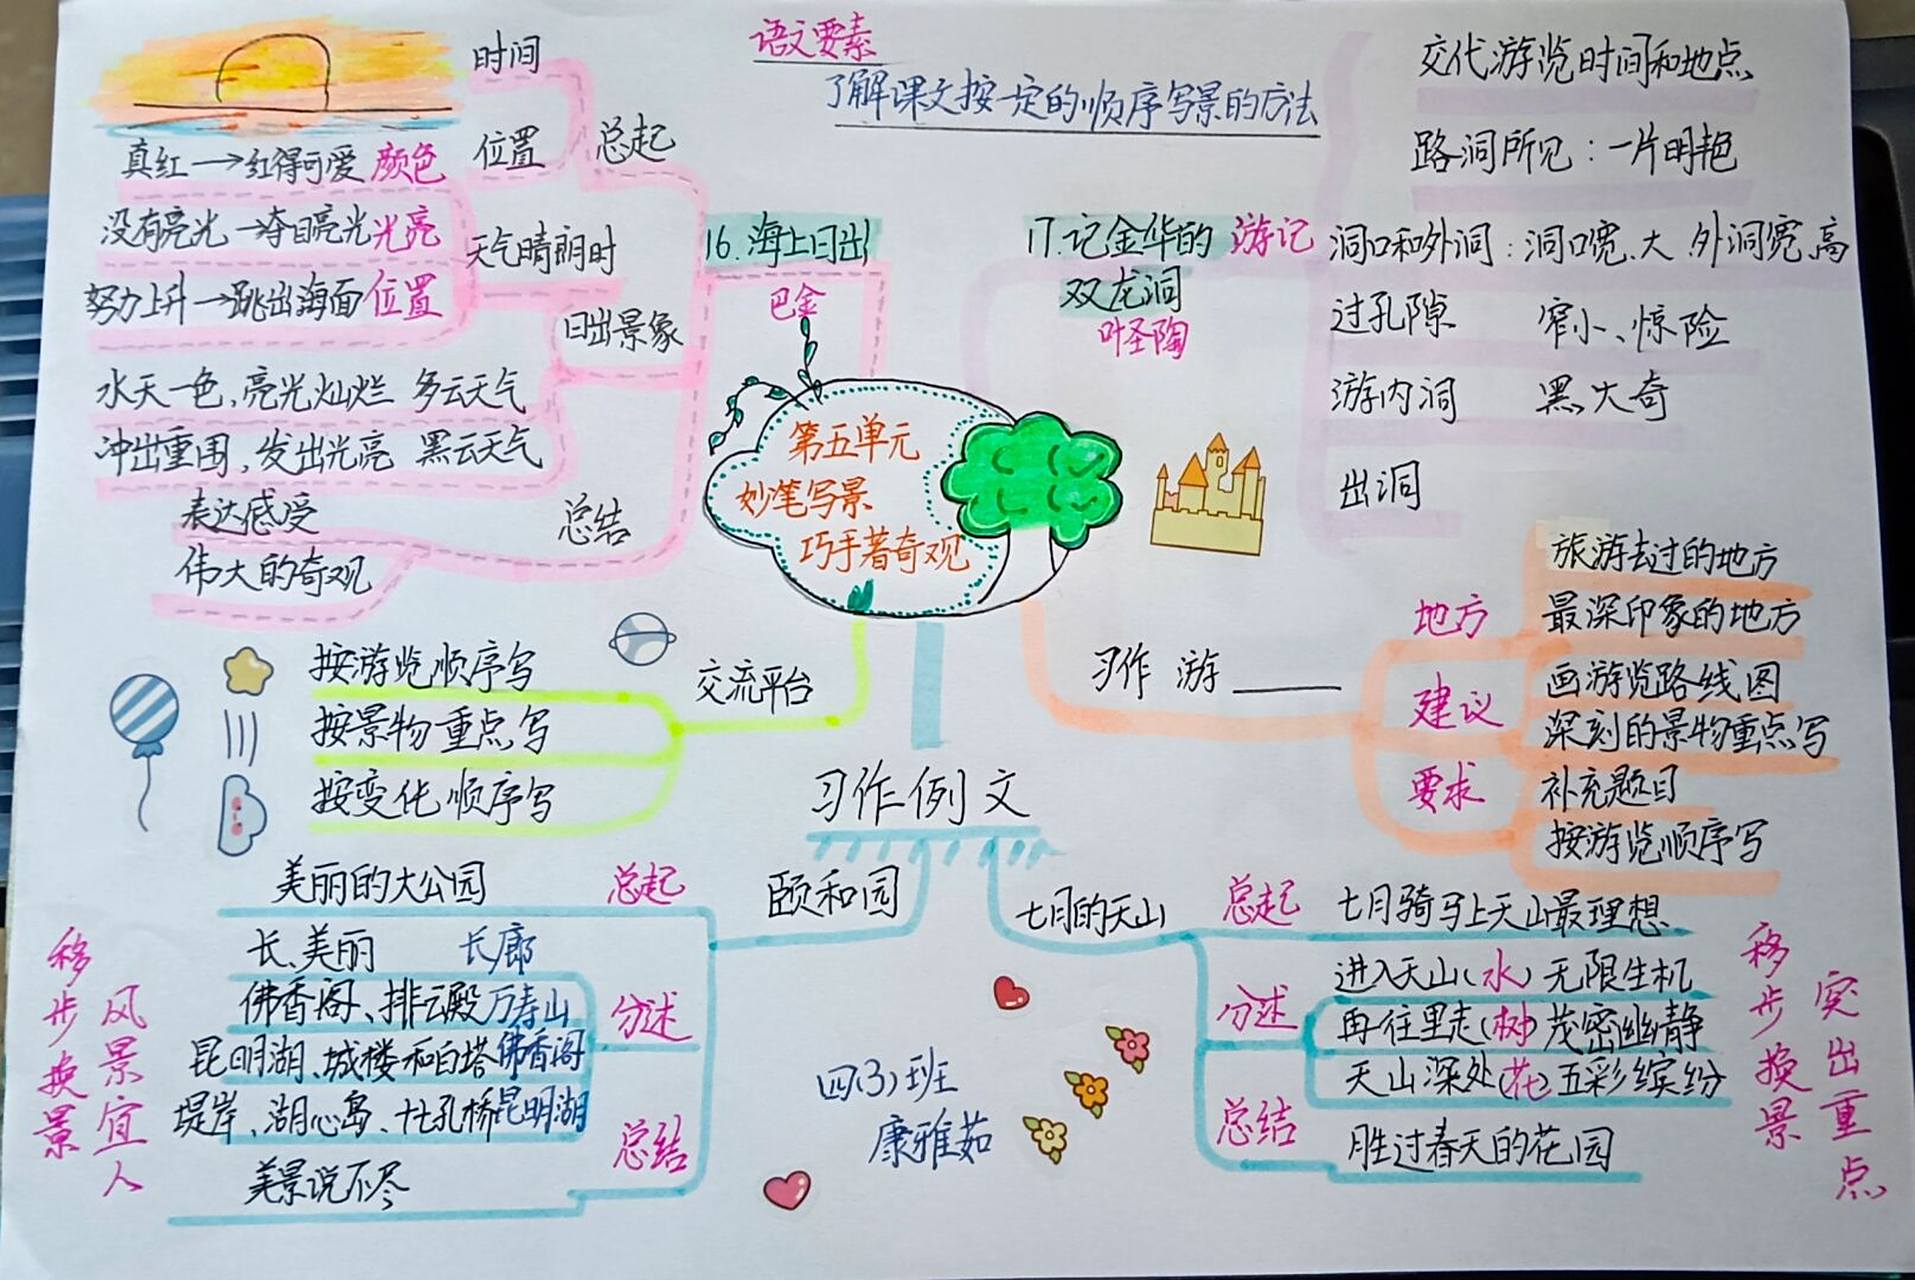 语文要素
了解课文按一定的顺序写景的方法
第五单元
妙笔写景
巧手著奇观
16.海上日出
巴金
总起
时间
位置
日出景象
天气晴朗时
真红→红得可爱 颜色
没有亮光→夺目亮光 光亮
努力上升→跳出海面 位置
水天一色、亮光灿烂 多云天气
冲出重围，发出光亮 黑云天气
总结
表达感受
伟大的奇观
17.记金华的 游记
双龙洞
叶圣陶
交代游览时间和地点
路洞所见：一片明艳
洞口和外洞：洞口宽、大 外洞宽、高
过孔隙 窄小、惊险
游内洞 黑、大奇
出洞
交流平台
按游览顺序写
按景物重点写
按变化顺序写
习作 游 ______
地方
旅游去过的地方
最深印象的地方
建议
画游览路线图
深刻的景物重点写
要求
补充题目
按游览顺序写
习作例文
颐和园
总起
美丽的大公园
分述
长、美丽 长廊
佛香阁、排云殿 万寿山
昆明湖、城楼和白塔 佛香阁
堤岸、湖心岛、十七孔桥 昆明湖
总结
美景说不尽
移步换景
风景宜人
七月的天山
总起
七月骑马上天山最理想
分述
进入天山（水）无限生机
再往里走（树）茂密幽静
天山深处（花）五彩缤纷
总结
胜过春天的花园
移步换景
突出重点
四(3)班
康雅茹